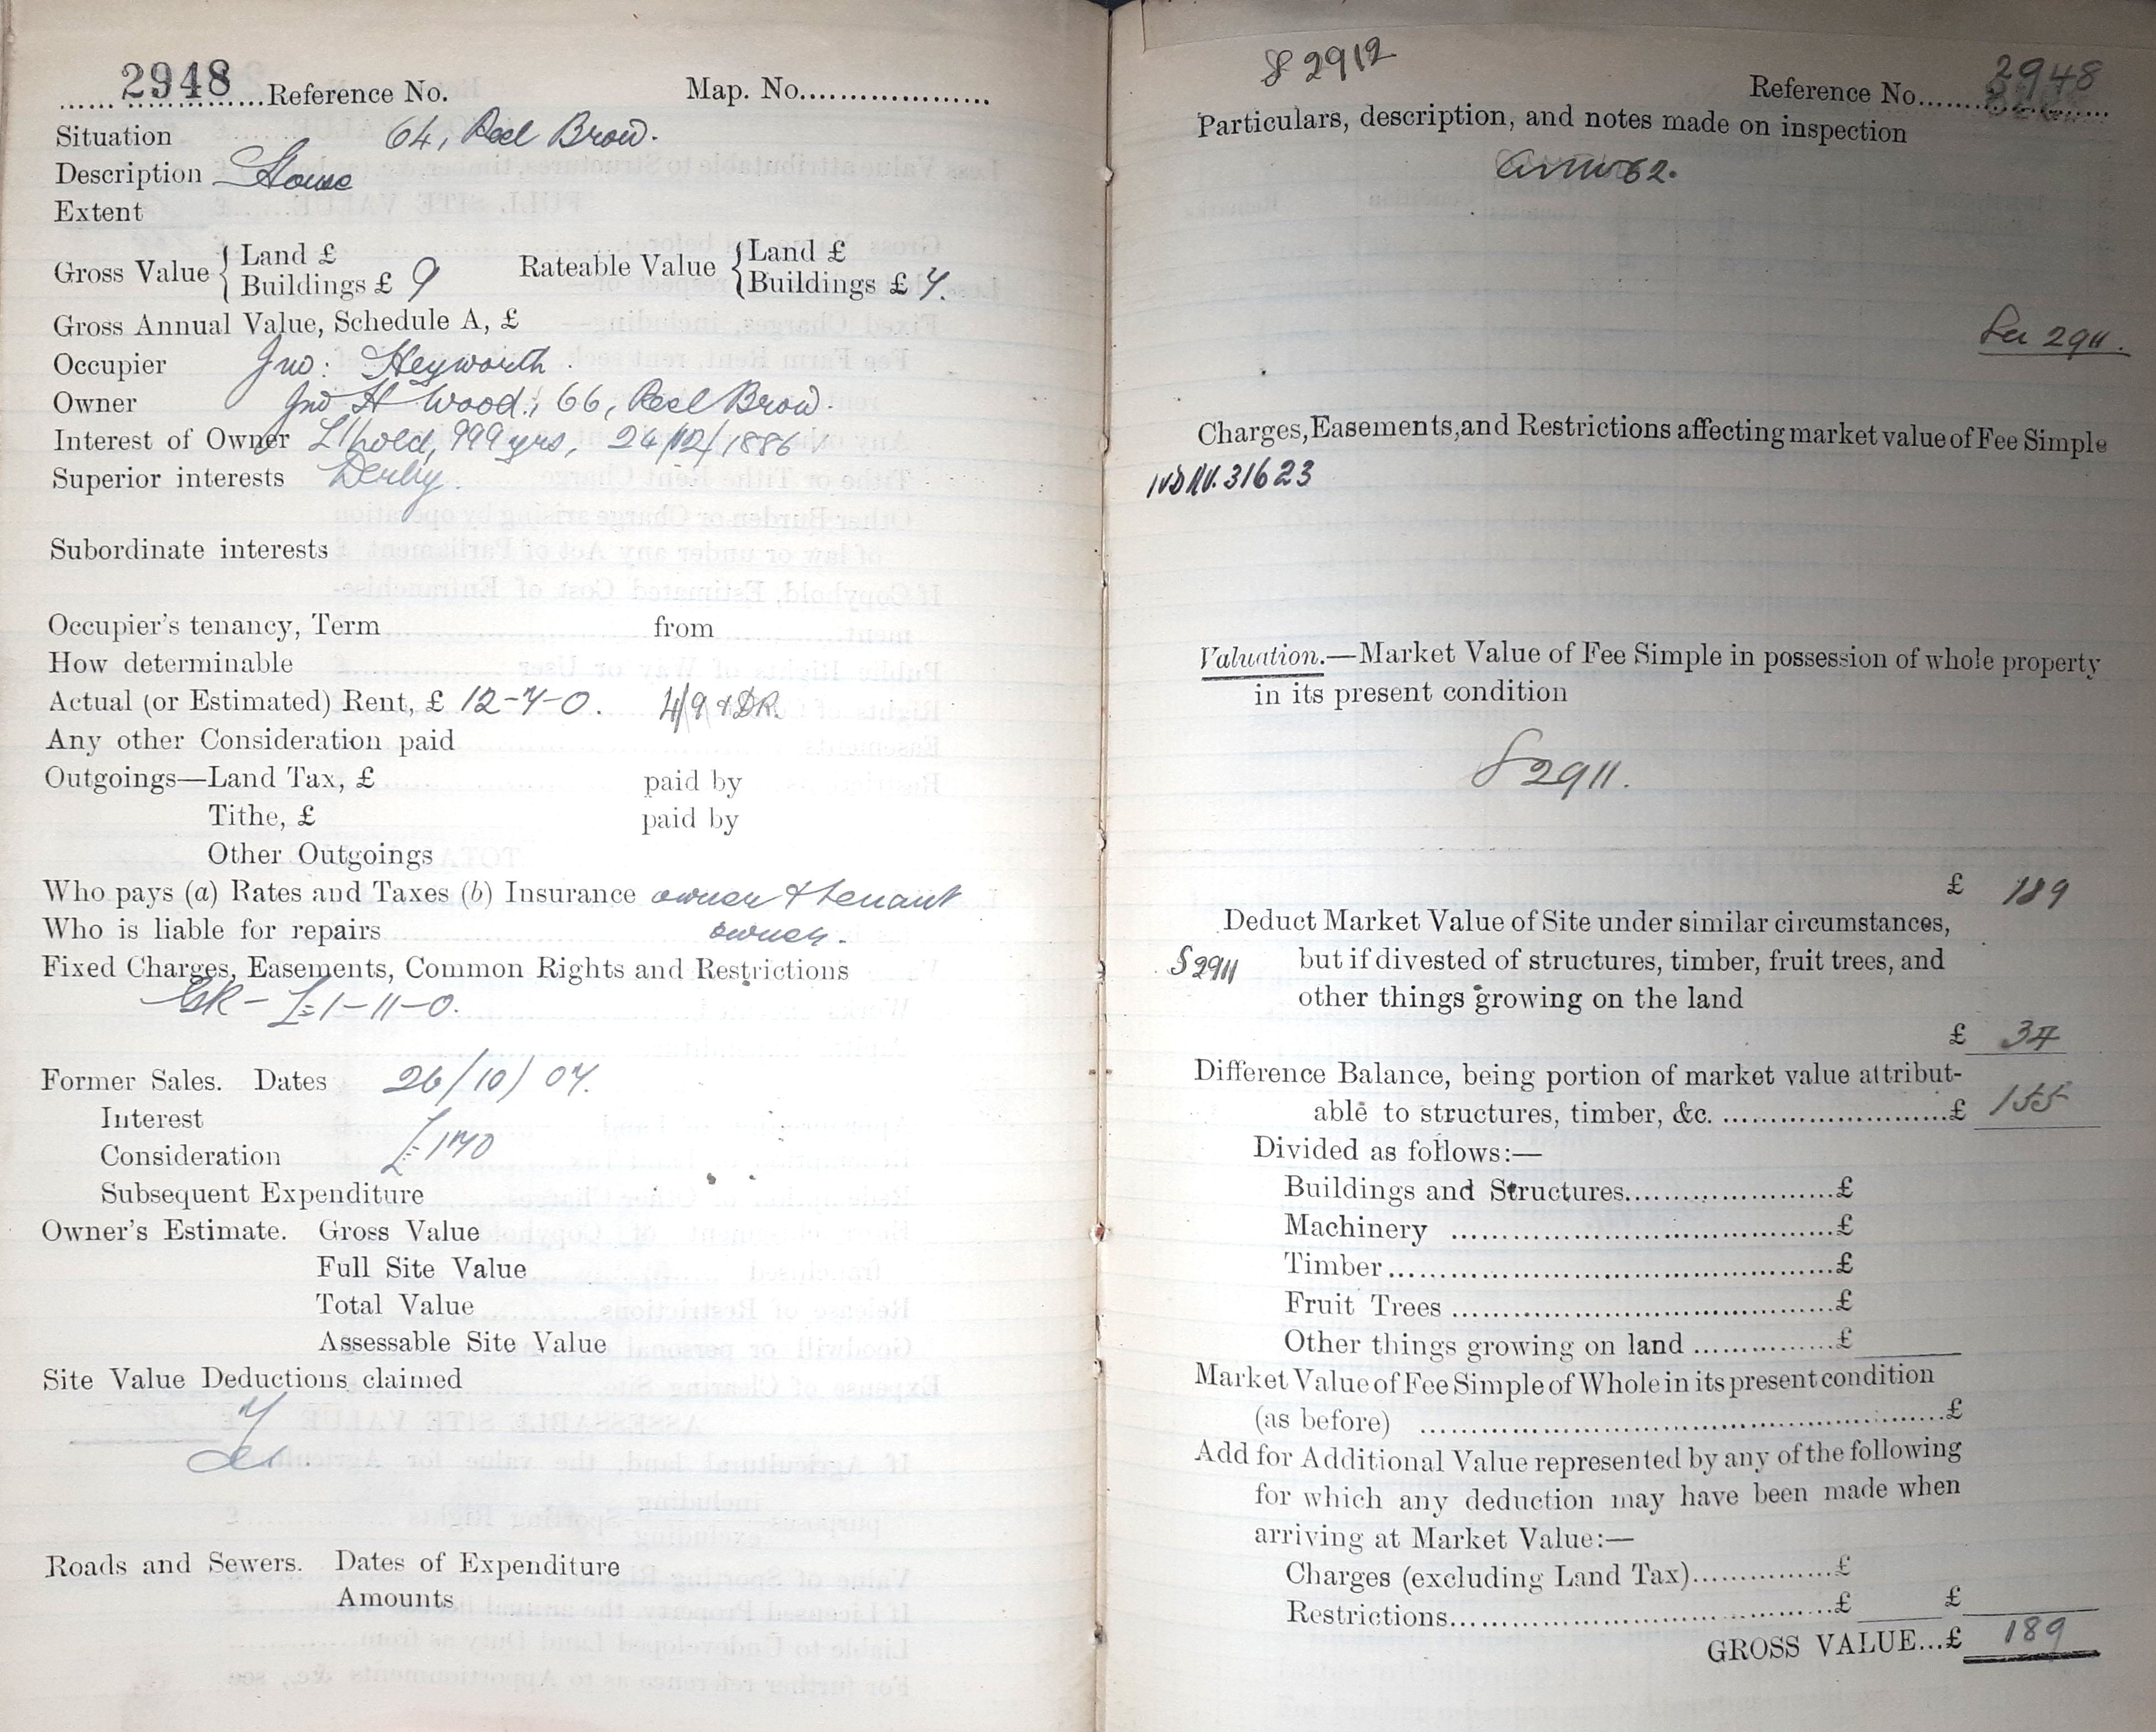 2948 Reference No. Map. No.
Situation 64, Peel Brow.
Description House
Extent
Gross Value { Land £
Buildings £ 9
Rateable Value { Land £
Buildings £ 7.
Gross Annual Value, Schedule A, £
Occupier Jno: Heyworth
Owner Jno H Wood, 66, Peel Brow.
Interest of Owner L'hold, 999 yrs, 24/12/1886
Superior interests Derby.
Subordinate interests
Occupier's tenancy, Term from
How determinable
Actual (or Estimated) Rent, £ 12-7-0. 4/9 & DR.
Any other Consideration paid
Outgoings—Land Tax, £ paid by
Tithe, £ paid by
Other Outgoings
Who pays (a) Rates and Taxes (b) Insurance owner & tenant
Who is liable for repairs owner.
Fixed Charges, Easements, Common Rights and Restrictions
GR - £1-11-0.
Former Sales. Dates 26/10/07.
Interest
Consideration £170
Subsequent Expenditure
Owner's Estimate. Gross Value
Full Site Value
Total Value
Assessable Site Value
Site Value Deductions claimed
Roads and Sewers. Dates of Expenditure
Amounts
S 2912
Reference No. 2948
Particulars, description, and notes made on inspection
62.
See 2911.
Charges, Easements, and Restrictions affecting market value of Fee Simple
31623
Valuation.—Market Value of Fee Simple in possession of whole property
in its present condition
S 2911.
£ 189
Deduct Market Value of Site under similar circumstances,
S 2911 but if divested of structures, timber, fruit trees, and
other things growing on the land
£ 34
Difference Balance, being portion of market value attribut-
able to structures, timber, &c. £ 155
Divided as follows:—
Buildings and Structures £
Machinery £
Timber £
Fruit Trees £
Other things growing on land £
Market Value of Fee Simple of Whole in its present condition
(as before) £
Add for Additional Value represented by any of the following
for which any deduction may have been made when
arriving at Market Value:—
Charges (excluding Land Tax) £
Restrictions £ £
GROSS VALUE...£ 189